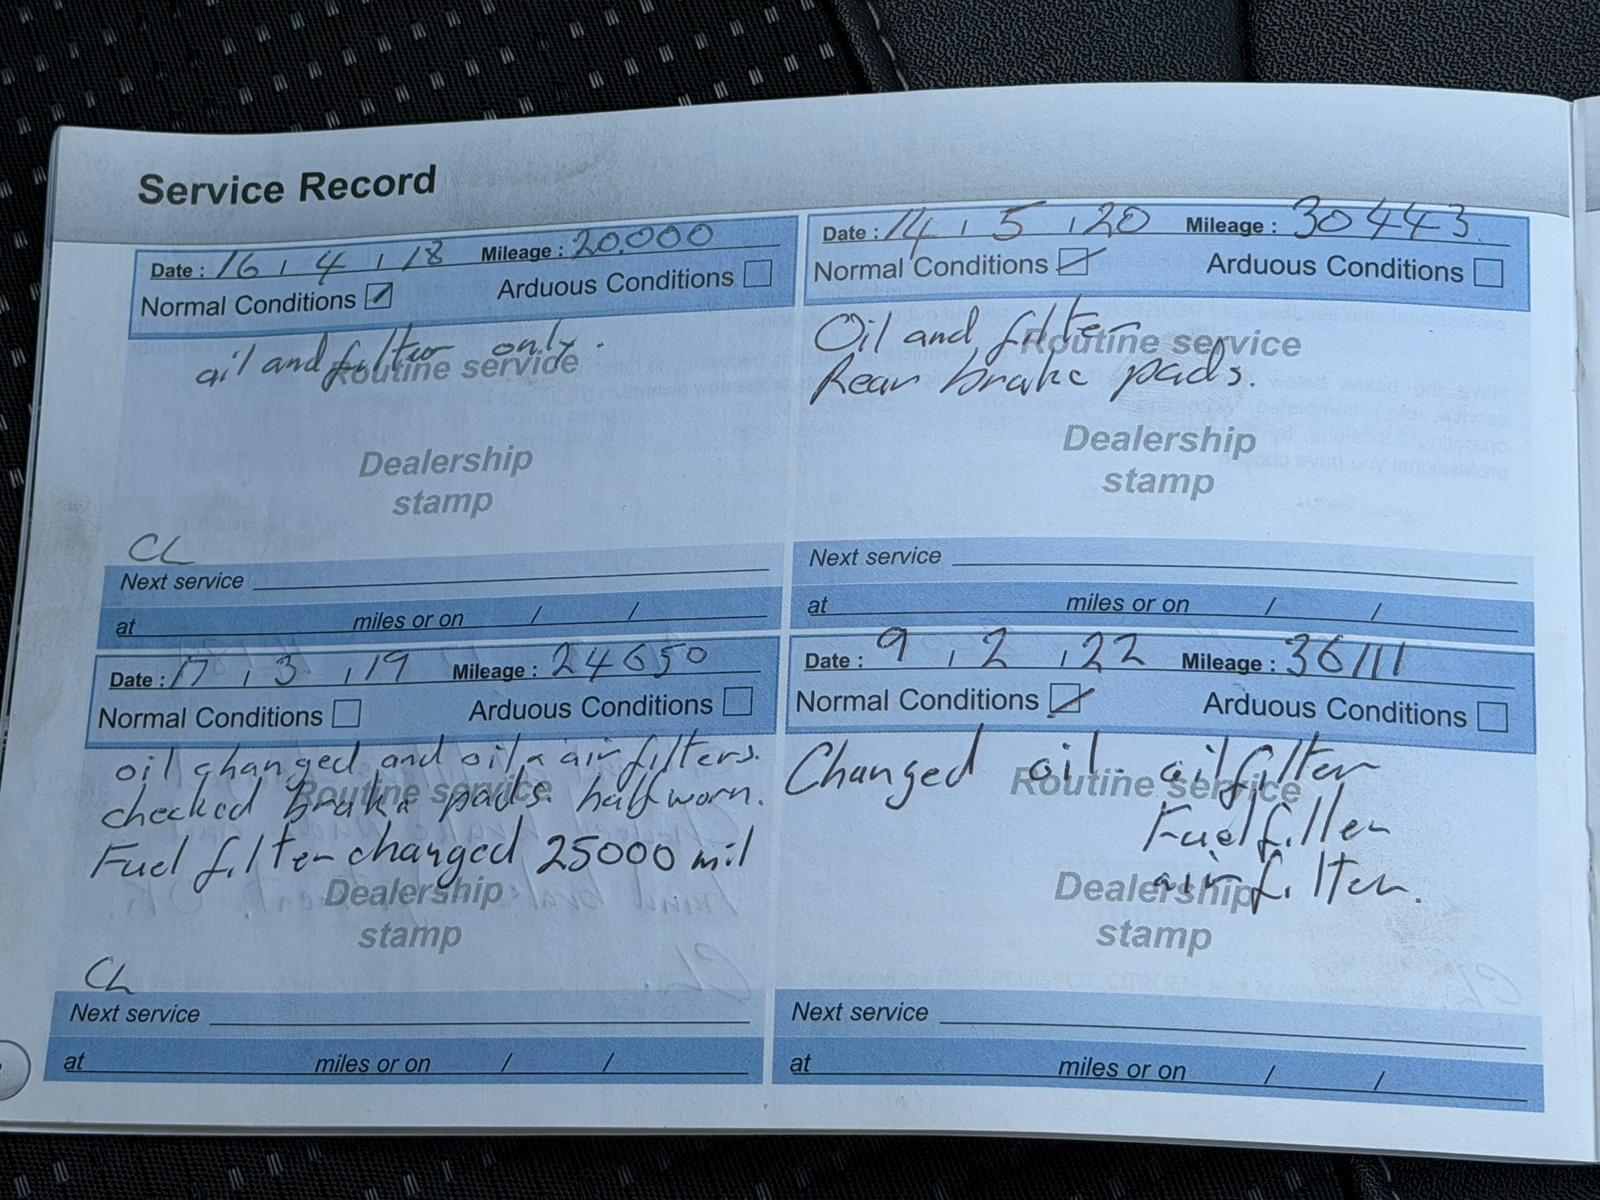 Service Record
Date : 16 / 4 / 18 Mileage : 20.000
Normal Conditions Arduous Conditions
oil and filter only.
Routine service
Dealership
stamp
CL
Next service
at miles or on / /
Date : 17 / 3 / 19 Mileage : 24650
Normal Conditions Arduous Conditions
oil changed and oil & air filters.
Routine service
checked brake pads. half worn.
Fuel filter changed 25000 mil
Dealership
stamp
CL
Next service
at miles or on / /
Date : 14 / 5 / 20 Mileage : 30443
Normal Conditions Arduous Conditions
Oil and filter
Routine service
Rear brake pads.
Dealership
stamp
Next service
at miles or on / /
Date : 9 / 2 / 22 Mileage : 36111
Normal Conditions Arduous Conditions
Changed oil. oil filter
Routine service
Fuel filter
air filter.
Dealership
stamp
Next service
at miles or on / /